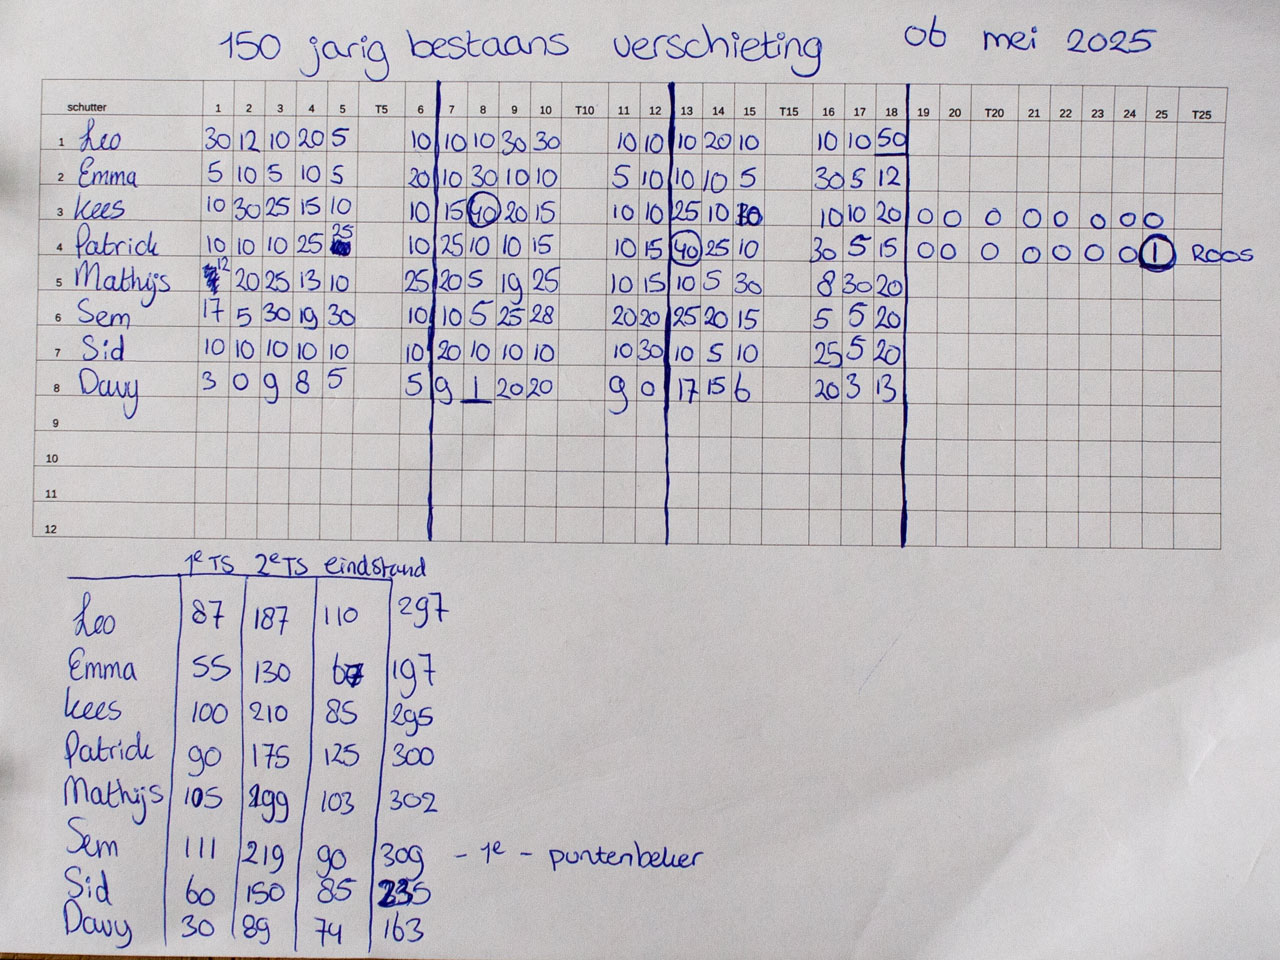 150 jarig bestaans verschieting 06 mei 2025
schutter 1 2 3 4 5 T5 6 7 8 9 10 T10 11 12 13 14 15 T15 16 17 18 19 20 T20 21 22 23 24 25 T25
1 Leo 30 12 10 20 5 10 10 10 30 30 10 10 10 20 10 10 10 50
2 Emma 5 10 5 10 5 20 10 30 10 10 5 10 10 10 5 30 5 12
3 Kees 10 30 25 15 10 10 15 40 20 15 10 10 25 10 10 10 20 0 0 0 0 0 0 0 0
4 Patrick 10 10 10 25 25 10 25 10 10 15 10 15 40 25 10 30 5 15 0 0 0 0 0 0 0 1 ROOS
5 Mathijs 12 20 25 13 10 25 20 5 19 25 10 15 10 5 30 8 30 20
6 Sem 17 5 30 19 30 10 10 5 25 28 20 20 25 20 15 5 5 20
7 Sid 10 10 10 10 10 10 20 10 10 10 10 30 10 5 10 25 5 20
8 Davy 3 0 9 8 5 5 9 1 20 20 9 0 17 15 6 20 3 13
9
10
11
12
1e TS 2e TS eindstand
Leo 87 187 110 297
Emma 55 130 67 197
Kees 100 210 85 295
Patrick 90 175 125 300
Mathijs 105 199 103 302
Sem 111 219 90 309 - 1e - puntenbeker
Sid 60 150 85 235
Davy 30 89 74 163